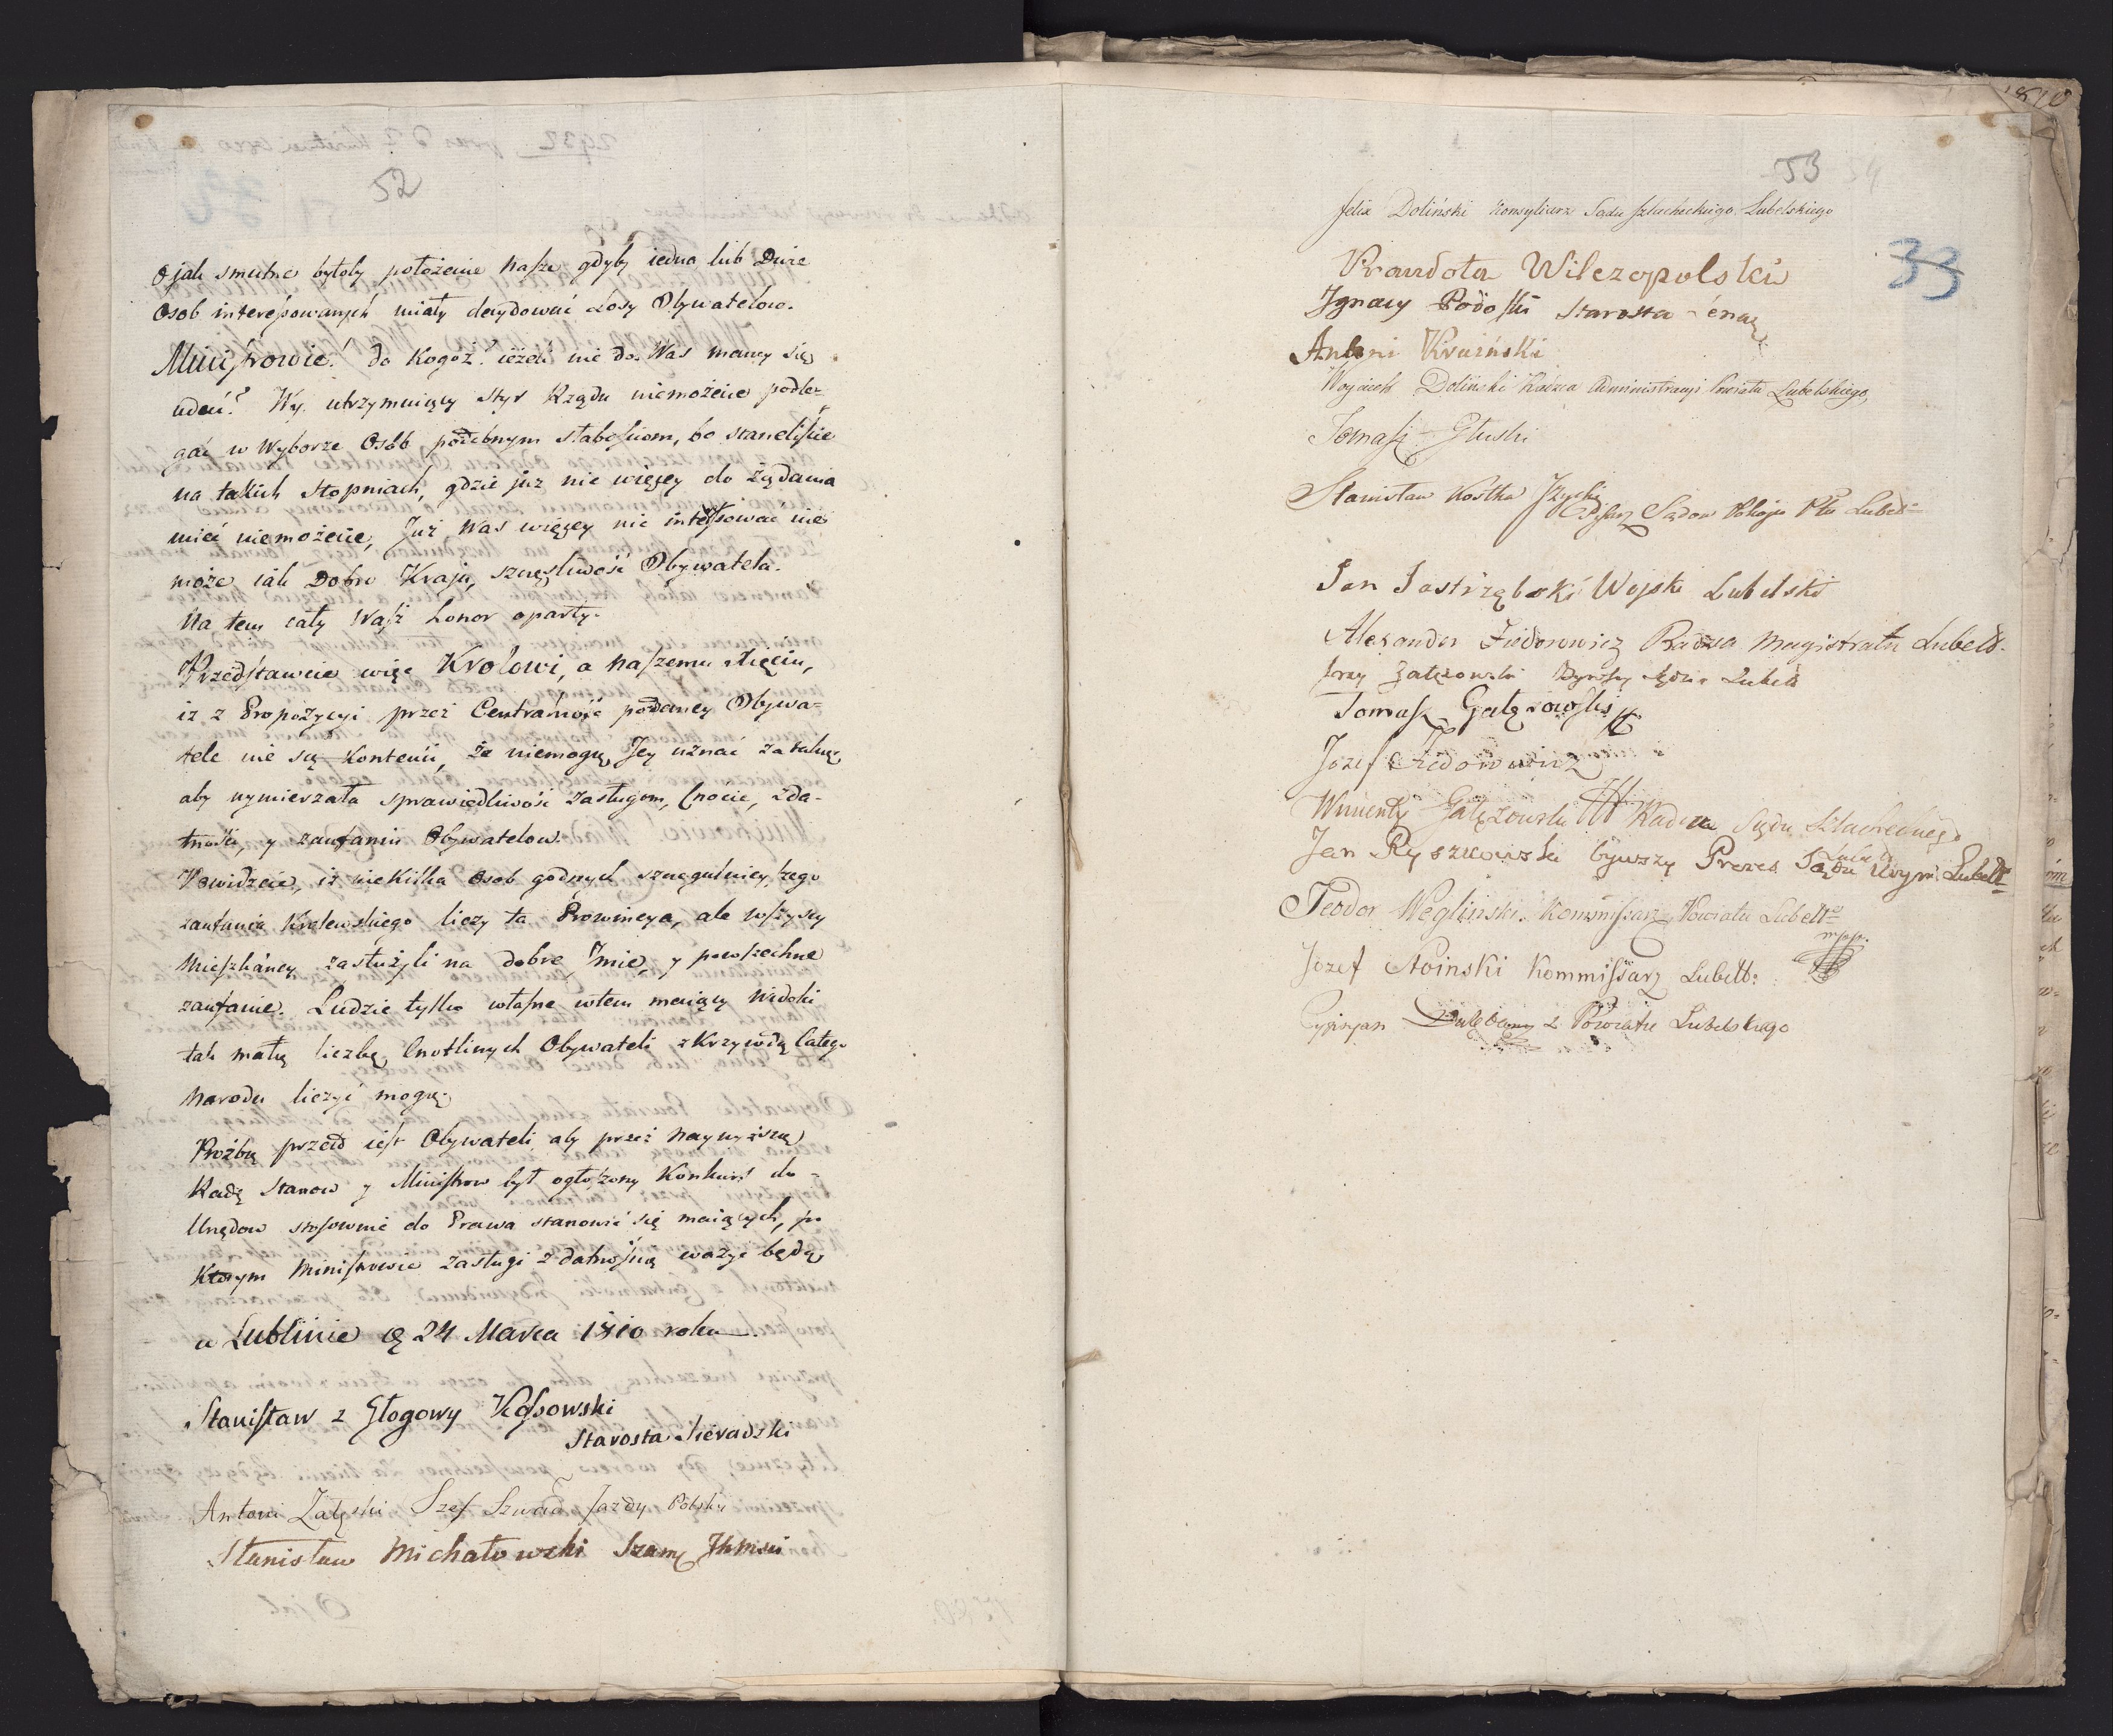 52
O jak smutne byłoby położenie nasze gdyby iedna lub Dwie
Osob interessowanych miały decydować Losy Obywatelow.
Ministrowie! do Kogoż? ieżeli nie do Was mamy się
udać? Wy utrzymuiący styr Rządu niemożecie podle-
gać w Wyborze Osób podobnym słabościom, bo staneliście
na takich stopniach, gdzie już nic więcey do żądania
mieć niemożecie, Już Was więcey nic interessować nie
może iak Dobro Kraju, szczęśliwość Obywatela.
Na tem cały Wasz honor oparty.
Przedstawcie więc Krolowi, a naszemu Xięciu,
iż z Propozycyi przez Centralność podaney Obywa-
tele nie są Kontenci, że niemogą Jey uznać za taką
aby wymierzała sprawiedliwość zasługom, Cnocie, zda-
tności, y zaufaniu Obywatelow.
Powidzcie, iż niekilka Osob godnych szczegulnieyszego
zaufania Krolewskiego liczy ta Prowincya, ale wszyscy
Mieszkáncy zasłużyli na dobre Jmie, y powszechne
zaufanie. Ludzie tylko własne wtem maiący widoki
tak małą liczbę Cnotliwych Obywateli z Krzywdą Całego
Narodu liczyć mogą.
Proźbą przeto iest Obywateli aby przez naywyższą
Radę Stanow y Ministrow był ogłoszony Konkurs do
Urzędow stosownie do Prawa stanowić się maiących, po
Ktorym Ministrowie zasługi z datnością ważyć będą
w Lublinie d. 24 Marca 1810 roku.
Stanisław z Głogowy Kossowski
Starosta Sieradzki
Antoni Załęski Szef Szwad Jazdy Polsky
Stanisław Michałowski
1810
53
Felix Doliński Konsyliarz Sądu szlacheckiego Lubelskiego
33
Prandota Wilczopolski
Ignacy Podoski Starosta
Antoni Kruiński
Woyciech Doliński Radzca Administracyi Powiatu Lubelskiego
Tomasz Głuski
Stanisław Kostka
Pisarz Sądow Pokoju Ptu Lubels
Jan Jastrzębski Wojski Lubelski
Alexander Fiedorowicz Radzca Magistratu Lubels.
Jerzy Gałęzowski Bywszy Sędzia Lubels
Tomasz Gałęzowski
Jozef Fiedorowicz
Wincenty Gałęzowski Radzca Sądu Szlacheckiego
Jan Ryszkowski bywszy Prezes Sądu Krym. Lubels
Teodor Węgliński Kommissarz Powiatu Lubels
mpp.
Jozef Stoinski Kommissarz Lubels:
Cyprjan z Powiatu Lubelskiego